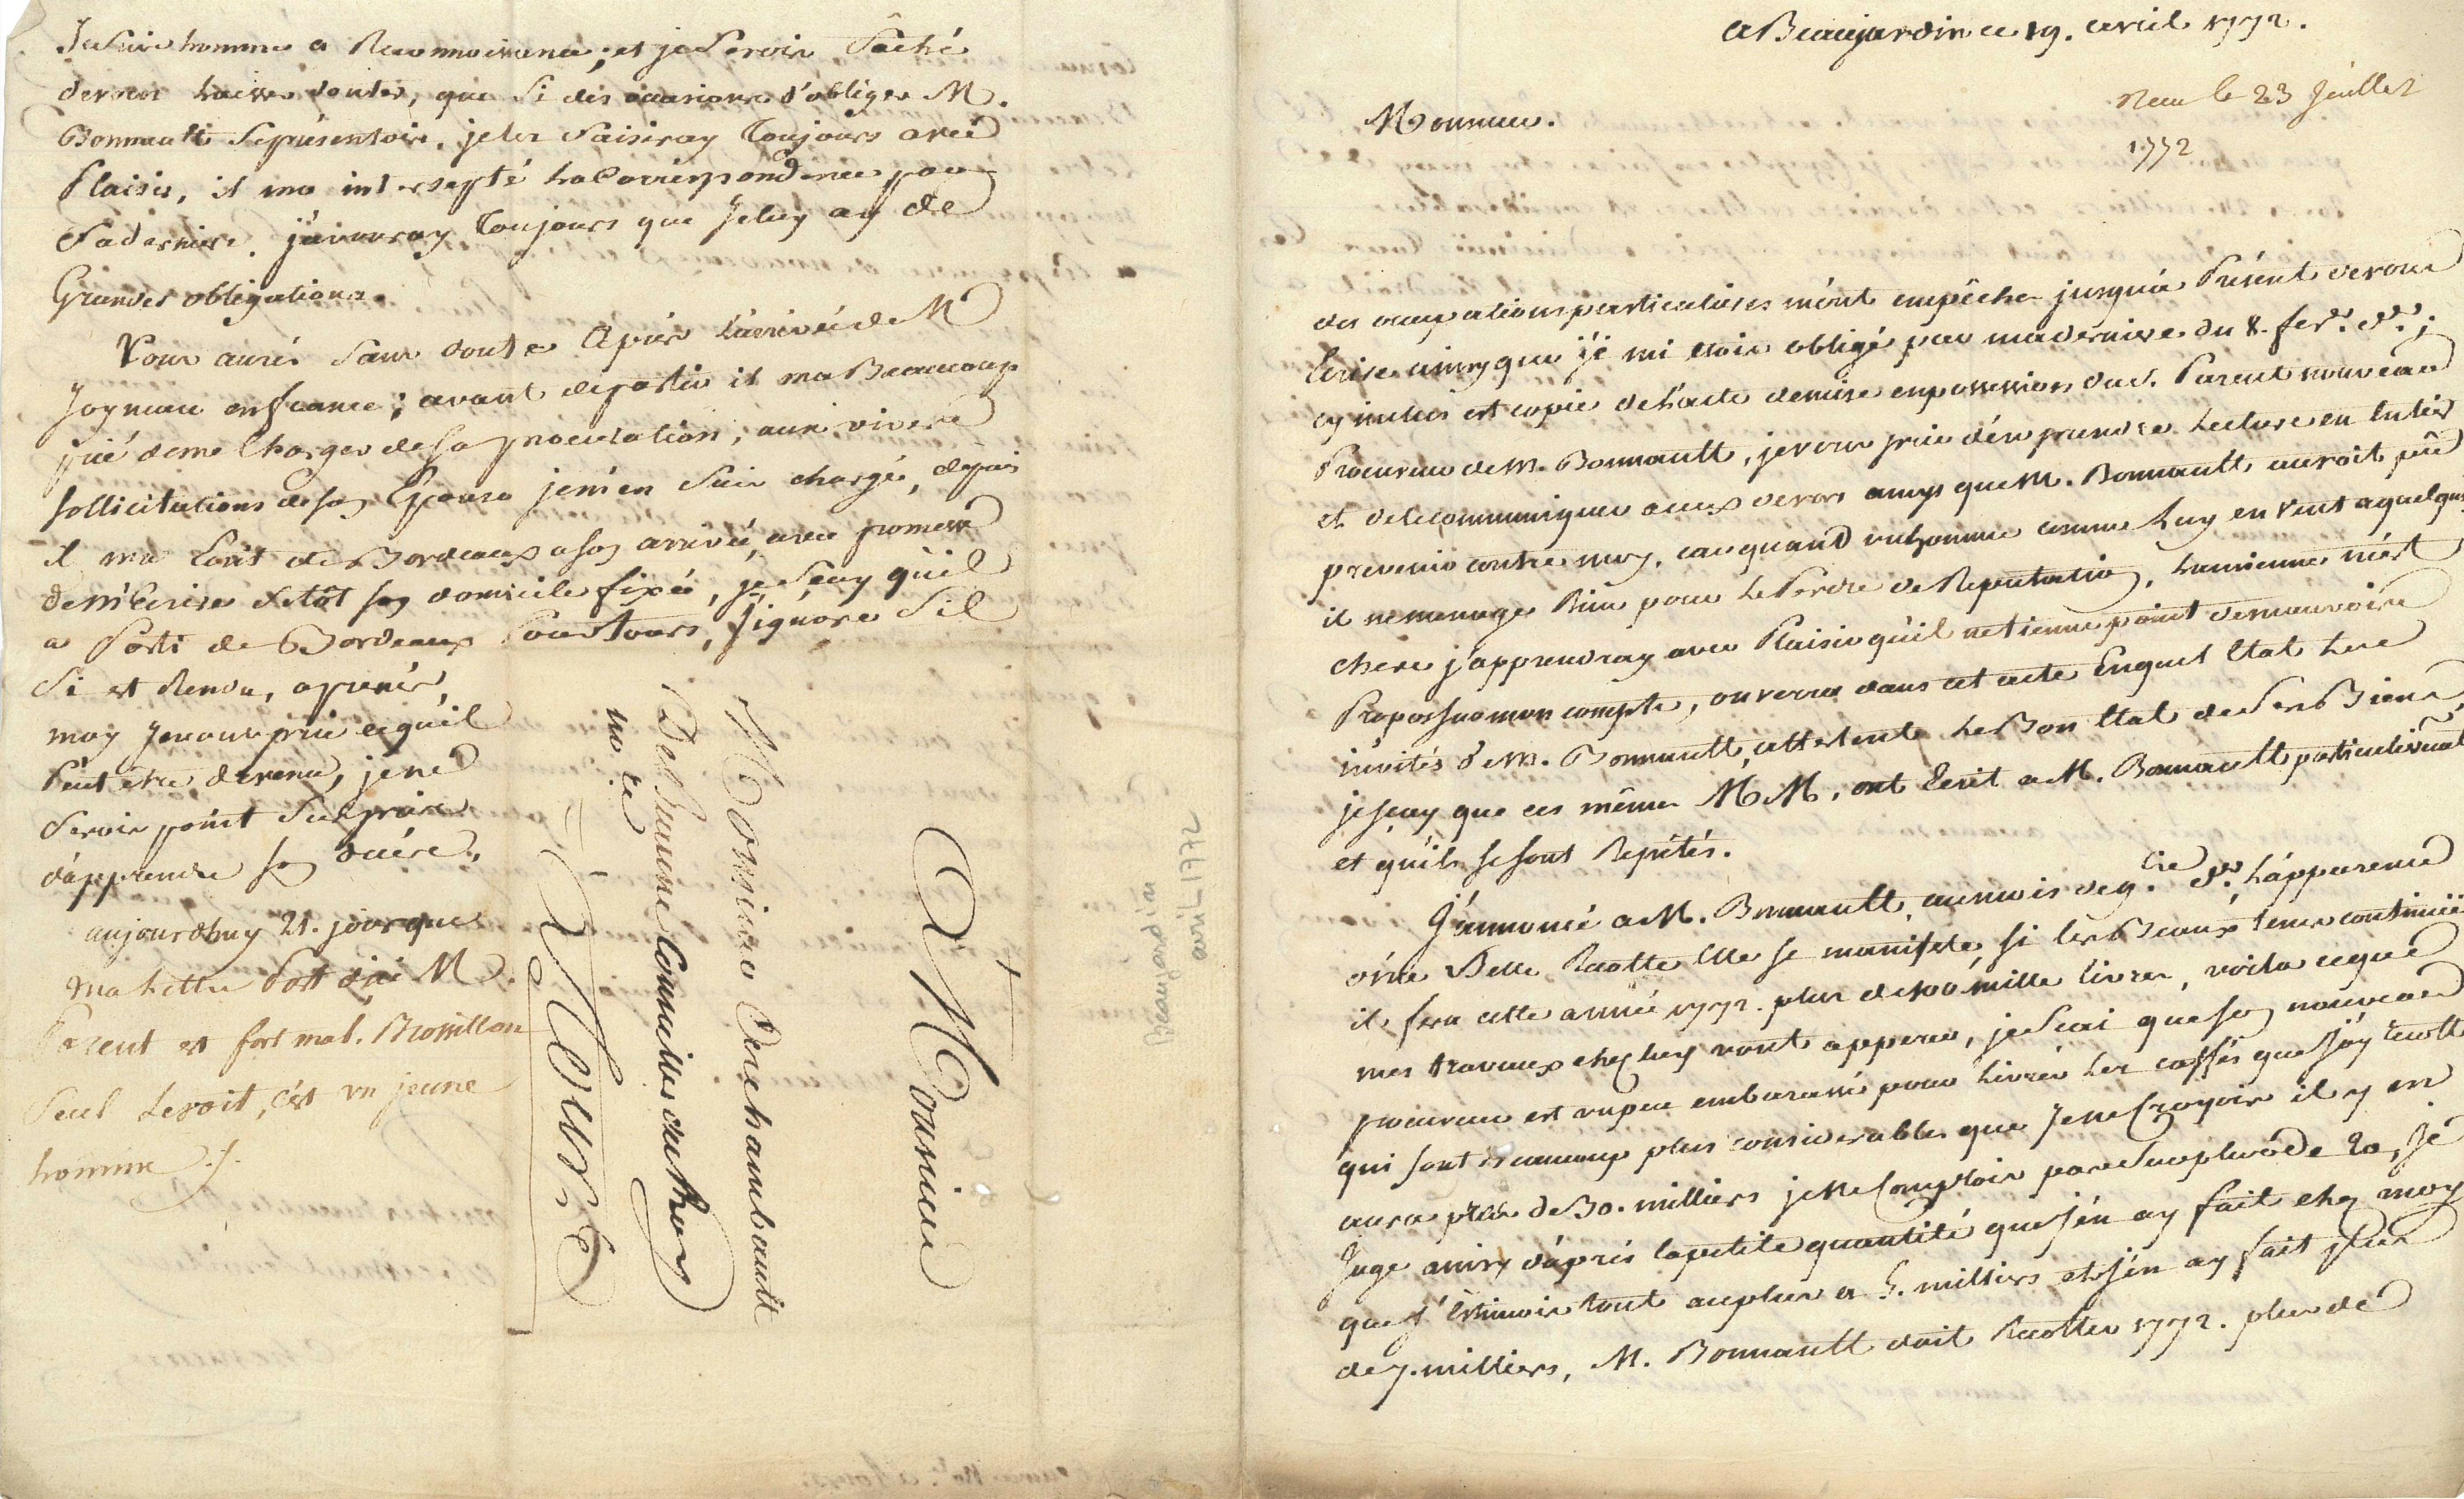 Je suis homme a Reconnoissance; et je serois fâché
de vous laisser douter, que si des occasions d'obliger M.
Bonnault se présentoir, je les saisiray toujours avec
Plaisir, il ma intersepté la Correspondence par
sa derniere. j'avouray toujours que Je luy ay de
Grandes obligations.
Vous aurés sans doute apris l'arrivée de M
Joyneau en france; avant de partir il ma Beaucoup
prié de me Charger de sa procuration; aux vives
sollicitations de son Epouse je m'en suis chargé, depuis
il ma Ecrit de Bordeaux a son arrivée, avec promesse
de m'Ecrire sitôt son domicile fixée, je sçay qu'il
a Parti de Bordeaux Pour Tours, J'ignore s'il
si est Rendu, aprenés
moy Je vous prie ce qu'il
Peut être devenu, je ne
serois point surpris
d'apprendre son décès.
aujourdhuy 21. jour que
ma Lettre Part d'ici M.
Parent est fort mal. Brossillon
seul le voit, c'est un jeune
homme ./.
A Monsieur
Monsieur Derchambault
De la rue Cornuilles au Thou
no. ce
A Tours
Beaujardin
avril 1772
A Beaujardin ce 19. avril 1772.
Reçu le 23 Juillet
1772
Monsieur.
des occupations particulières m'ont empêcher jusqu'a Présent de vous
Ecrire ainsy que je mi etois obligé par ma derniere du 8. fer. dr.;
cy inclus est copie de l'acte de mise en possession du s. Parent nouveau
Procureur de M. Bonnault, je vous prie d'en prendre lecture en Entier
et de le communiquer a ceux de vos amys que M. Bonnault auroit pû
prevenir contre moy. car quand un homme comme luy en veut a quelqu'
il ne menage Rien pour le Perdre de Reputation, la mienne m'est
chere j'apprendray avec Plaisir qu'il ne tienne point de mauvais
Propos sur mon compte, on verra dans cet acte En quel Etat les
invités de M. Bonnault, attestent le Bon Etat de ses Biens,
je sçay que ces mêmes M M, ont Ecrit a M. Bonnault particulierement
et qu'ils se sont Repétés.
J'annoncé a M. Bonnault, au mois de 9.bre dr. L'apparence
d'une Belle Recolte Elle se manifeste, si les Beaux tems continuë
il fera cette année 1772. plus de 100 mille livres, voila ce que
mes travaux chez luy vont opperer, je sçai que son nouveau
procureur est un peu embarassé pour livrer les caffés que J'ay recolté
qui sont Beaucoup plus considerables que Je ne Croyois il y en
aura près de 30. milliers je ne Comptois pas sur plus de 20, Je
Juge ainsy d'après la petite quantité que J'en ay fait chez moy
que J'Estimois tout au plus a 5. milliers et J'en ay fait plus
de 7. milliers, M. Bonnault doit Recolter 1772. plus de